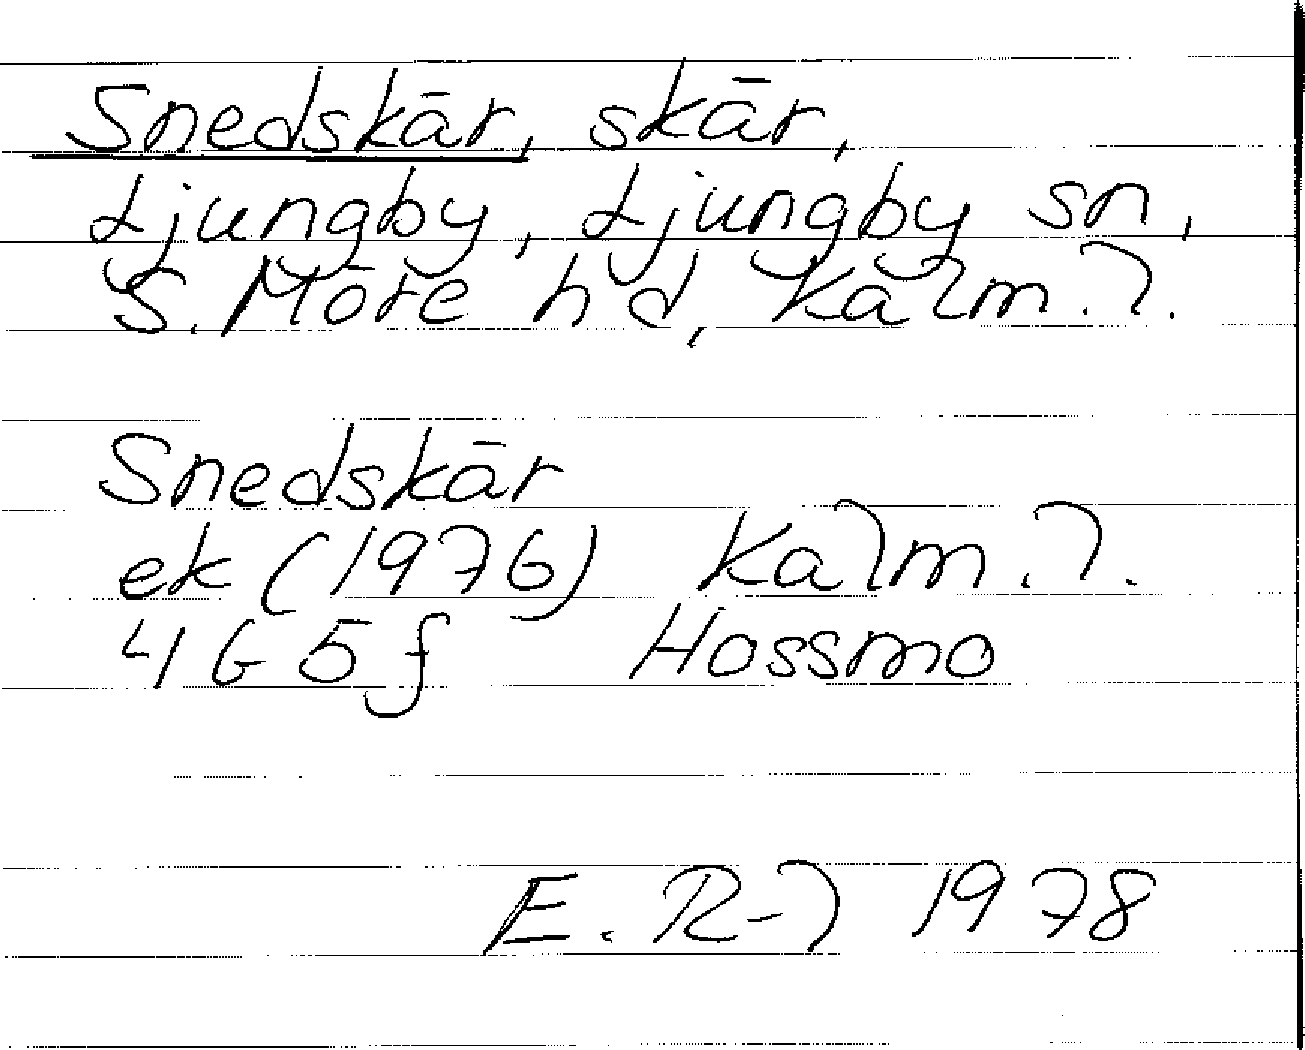 Snedskär, skär,
Ljungby, Ljungby sn,
S. Möre hd, Kalm. l.
Snedskär
ek (1976) Kalm. l.
4G5f Hossmo
E. R-l 1978